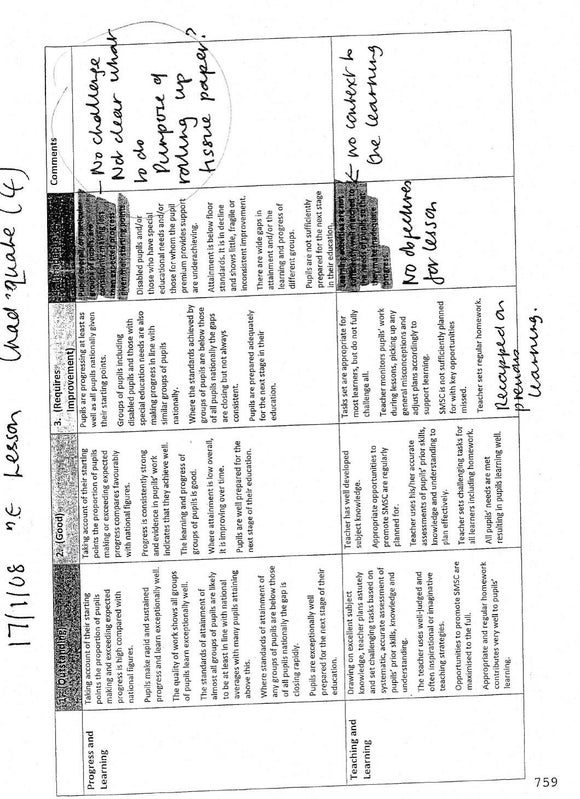 17/1/08 Lesson (4)
(Outstanding)
2. (Good)
3. (Requires
Improvement)
Comments
Progress and
Learning
Taking account of their starting
points the proportion of pupils
making and exceeding expected
progress is high compared with
national figures.
Pupils make rapid and sustained
progress and learn exceptionally well.
The quality of work shows all groups
of pupils learn exceptionally well.
The standards of attainment of
almost all groups of pupils are likely
to be at least in line with national
averages with many pupils attaining
above this.
Where standards of attainment of
any groups of pupils are below those
of all pupils nationally the gap is
closing rapidly.
Pupils are exceptionally well
prepared for the next stage of their
education.
Taking account of their starting
points the proportion of pupils
making or exceeding expected
progress compares favourably
with national figures.
Progress is consistently strong
and evidence in pupils' work
indicates that they achieve well.
The learning and progress of
groups of pupils is good.
Where attainment is low overall,
it is improving over time.
Pupils are well prepared for the
next stage of their education.
Pupils are progressing at least as
well as all pupils nationally given
their starting points.
Groups of pupils including
disabled pupils and those with
special education needs are also
making progress in line with
similar groups of pupils
nationally.
Where the standards achieved by
groups of pupils are below those
of all pupils nationally the gaps
are closing but not always
consistent.
Pupils are prepared adequately
for the next stage in their
education.
groups of pupils are
given their starting points.
Disabled pupils and/or
those who have special
educational needs and/or
those for whom the pupil
premium provides support
are underachieving.
Attainment is below floor
standards. It is in decline
and shows little, fragile or
inconsistent improvement.
There are wide gaps in
attainment and/or the
learning and progress of
different groups.
Pupils are not sufficiently
prepared for the next stage
in their education.
- No challenge
Not clear what
to do
Purpose of
rolling up
tissue paper?
Teaching and
Learning
Drawing on excellent subject
knowledge, teacher plans astutely
and set challenging tasks based on
systematic, accurate assessment of
pupils' prior skills, knowledge and
understanding.
The teacher uses well-judged and
often inspirational or imaginative
teaching strategies.
Opportunities to promote SMSC are
maximised to the full.
Appropriate and regular homework
contributes very well to pupils'
learning.
Teacher has well developed
subject knowledge.
Appropriate opportunities to
promote SMSC are regularly
planned for.
Teacher uses his/her accurate
assessments of pupils' prior skills,
knowledge and understanding to
plan effectively.
Teacher sets challenging tasks for
all learners including homework.
All pupils' needs are met
resulting in pupils learning well.
Tasks set are appropriate for
most learners, but do not fully
challenge all.
Teacher monitors pupils' work
during lessons, picking up any
general misconceptions and
adjust plans accordingly to
support learning.
SMSC is not sufficiently planned
for with key opportunities
missed.
Teacher sets regular homework.
Recapped on
previous
learning.
No objectives
for lesson
← no context to
the learning
759